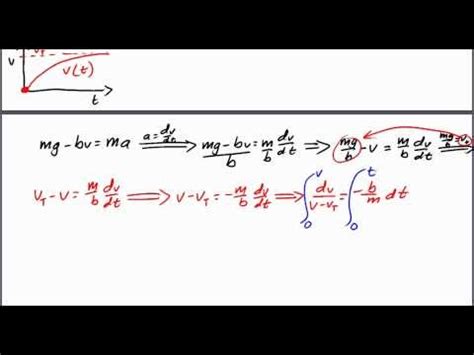 v_T
v
v(t)
t
mg-bv=ma ⟹ (a=dv/dt) (mg-bv)/b = m/b dv/dt ⟹ mg/b - v = m/b dv/dt ⟹
v_T - v = m/b dv/dt ⟹ v-v_T = -m/b dv/dt ⟹ ∫_0^v dv/(v-v_T) = ∫_0^t -b/m dt